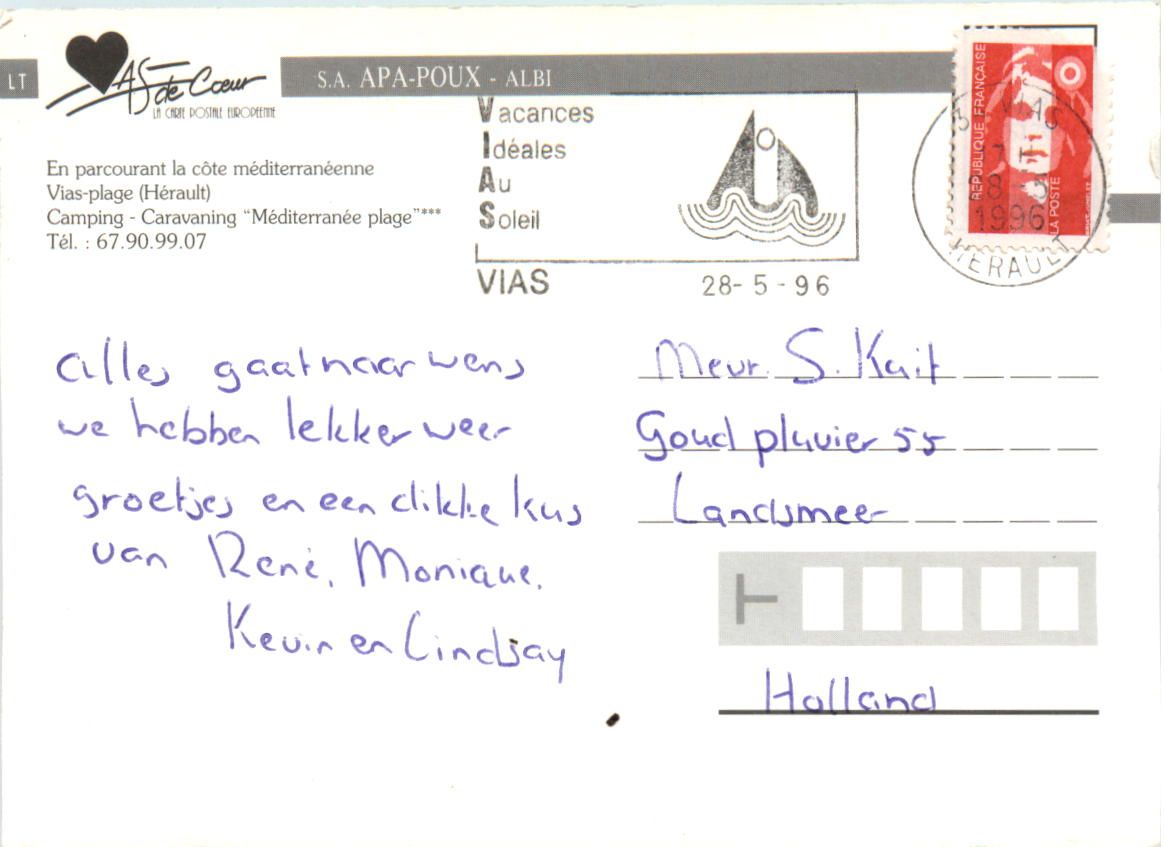 LT
AS de Cœur
LA CARTE POSTALE EUROPÉENNE
S.A. APA-POUX - ALBI
En parcourant la côte méditerranéenne
Vias-plage (Hérault)
Camping - Caravaning "Méditerranée plage"***
Tél. : 67.90.99.07
Vacances
Idéales
Au
Soleil
VIAS
28- 5 - 96
RÉPUBLIQUE FRANÇAISE
LA POSTE
VIAS
1996
HERAULT
alles gaat naar wens
we hebben lekker weer
groetjes en een dikke kus
van René, Monique,
Kevin en Lindsay
Mevr. S. Kuit
Goud plavier 55
Landsmeer
Holland